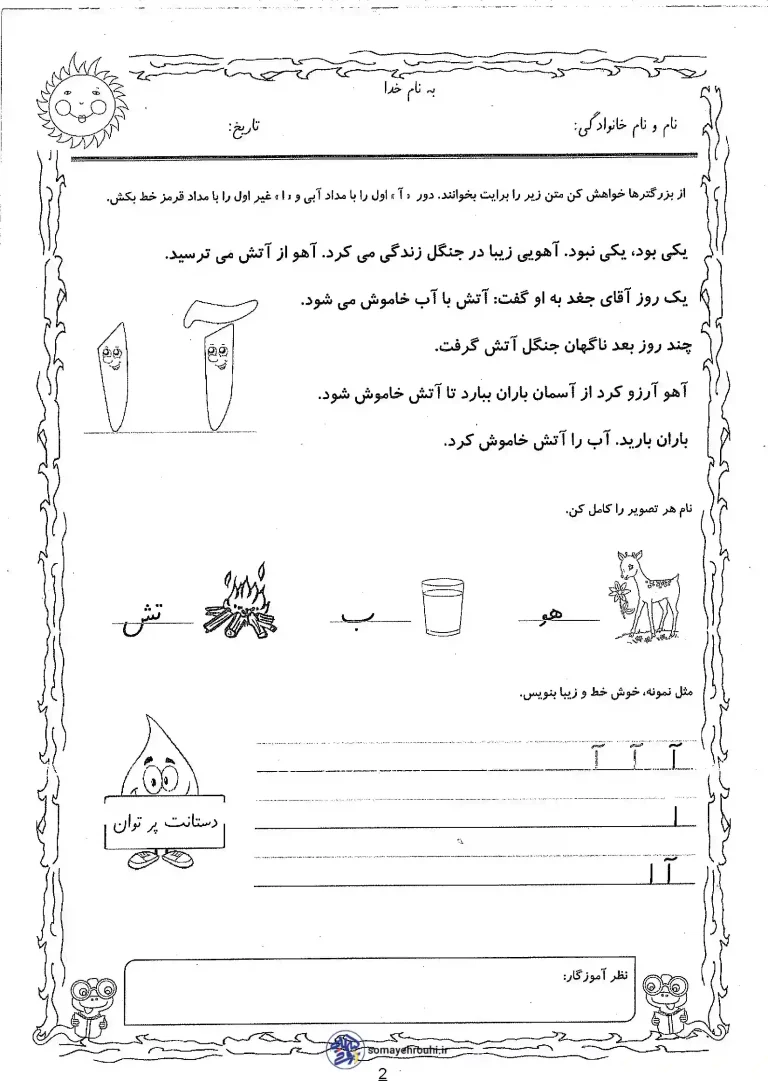 به نام خدا
نام و نام خانوادگی:
تاریخ:
از بزرگترها خواهش کن متن زیر را برایت بخوانند. دور « آ » اول را با مداد آبی و « ا » غیر اول را با مداد قرمز خط بکش.
یکی بود، یکی نبود. آهویی زیبا در جنگل زندگی می کرد. آهو از آتش می ترسید.
یک روز آقای جغد به او گفت: آتش با آب خاموش می شود.
چند روز بعد ناگهان جنگل آتش گرفت.
آهو آرزو کرد از آسمان باران ببارد تا آتش خاموش شود.
باران بارید. آب را آتش خاموش کرد.
نام هر تصویر را کامل کن.
هو
ب
تش
مثل نمونه، خوش خط و زیبا بنویس.
آ آ آ
ا
آ ا
دستانت پر توان
نظر آموزگار:
somayehrouhi.ir
2